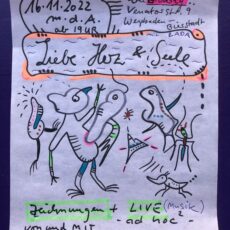 16.11.2022
m.d.A.
ab 19 UHR
Venatorstr. 9
Wiesbaden
Bierstadt
LADA
Liebe Herz & Seele
Zeichnungen + LIVE (Musik)
2
von und MIT - ad hoc -